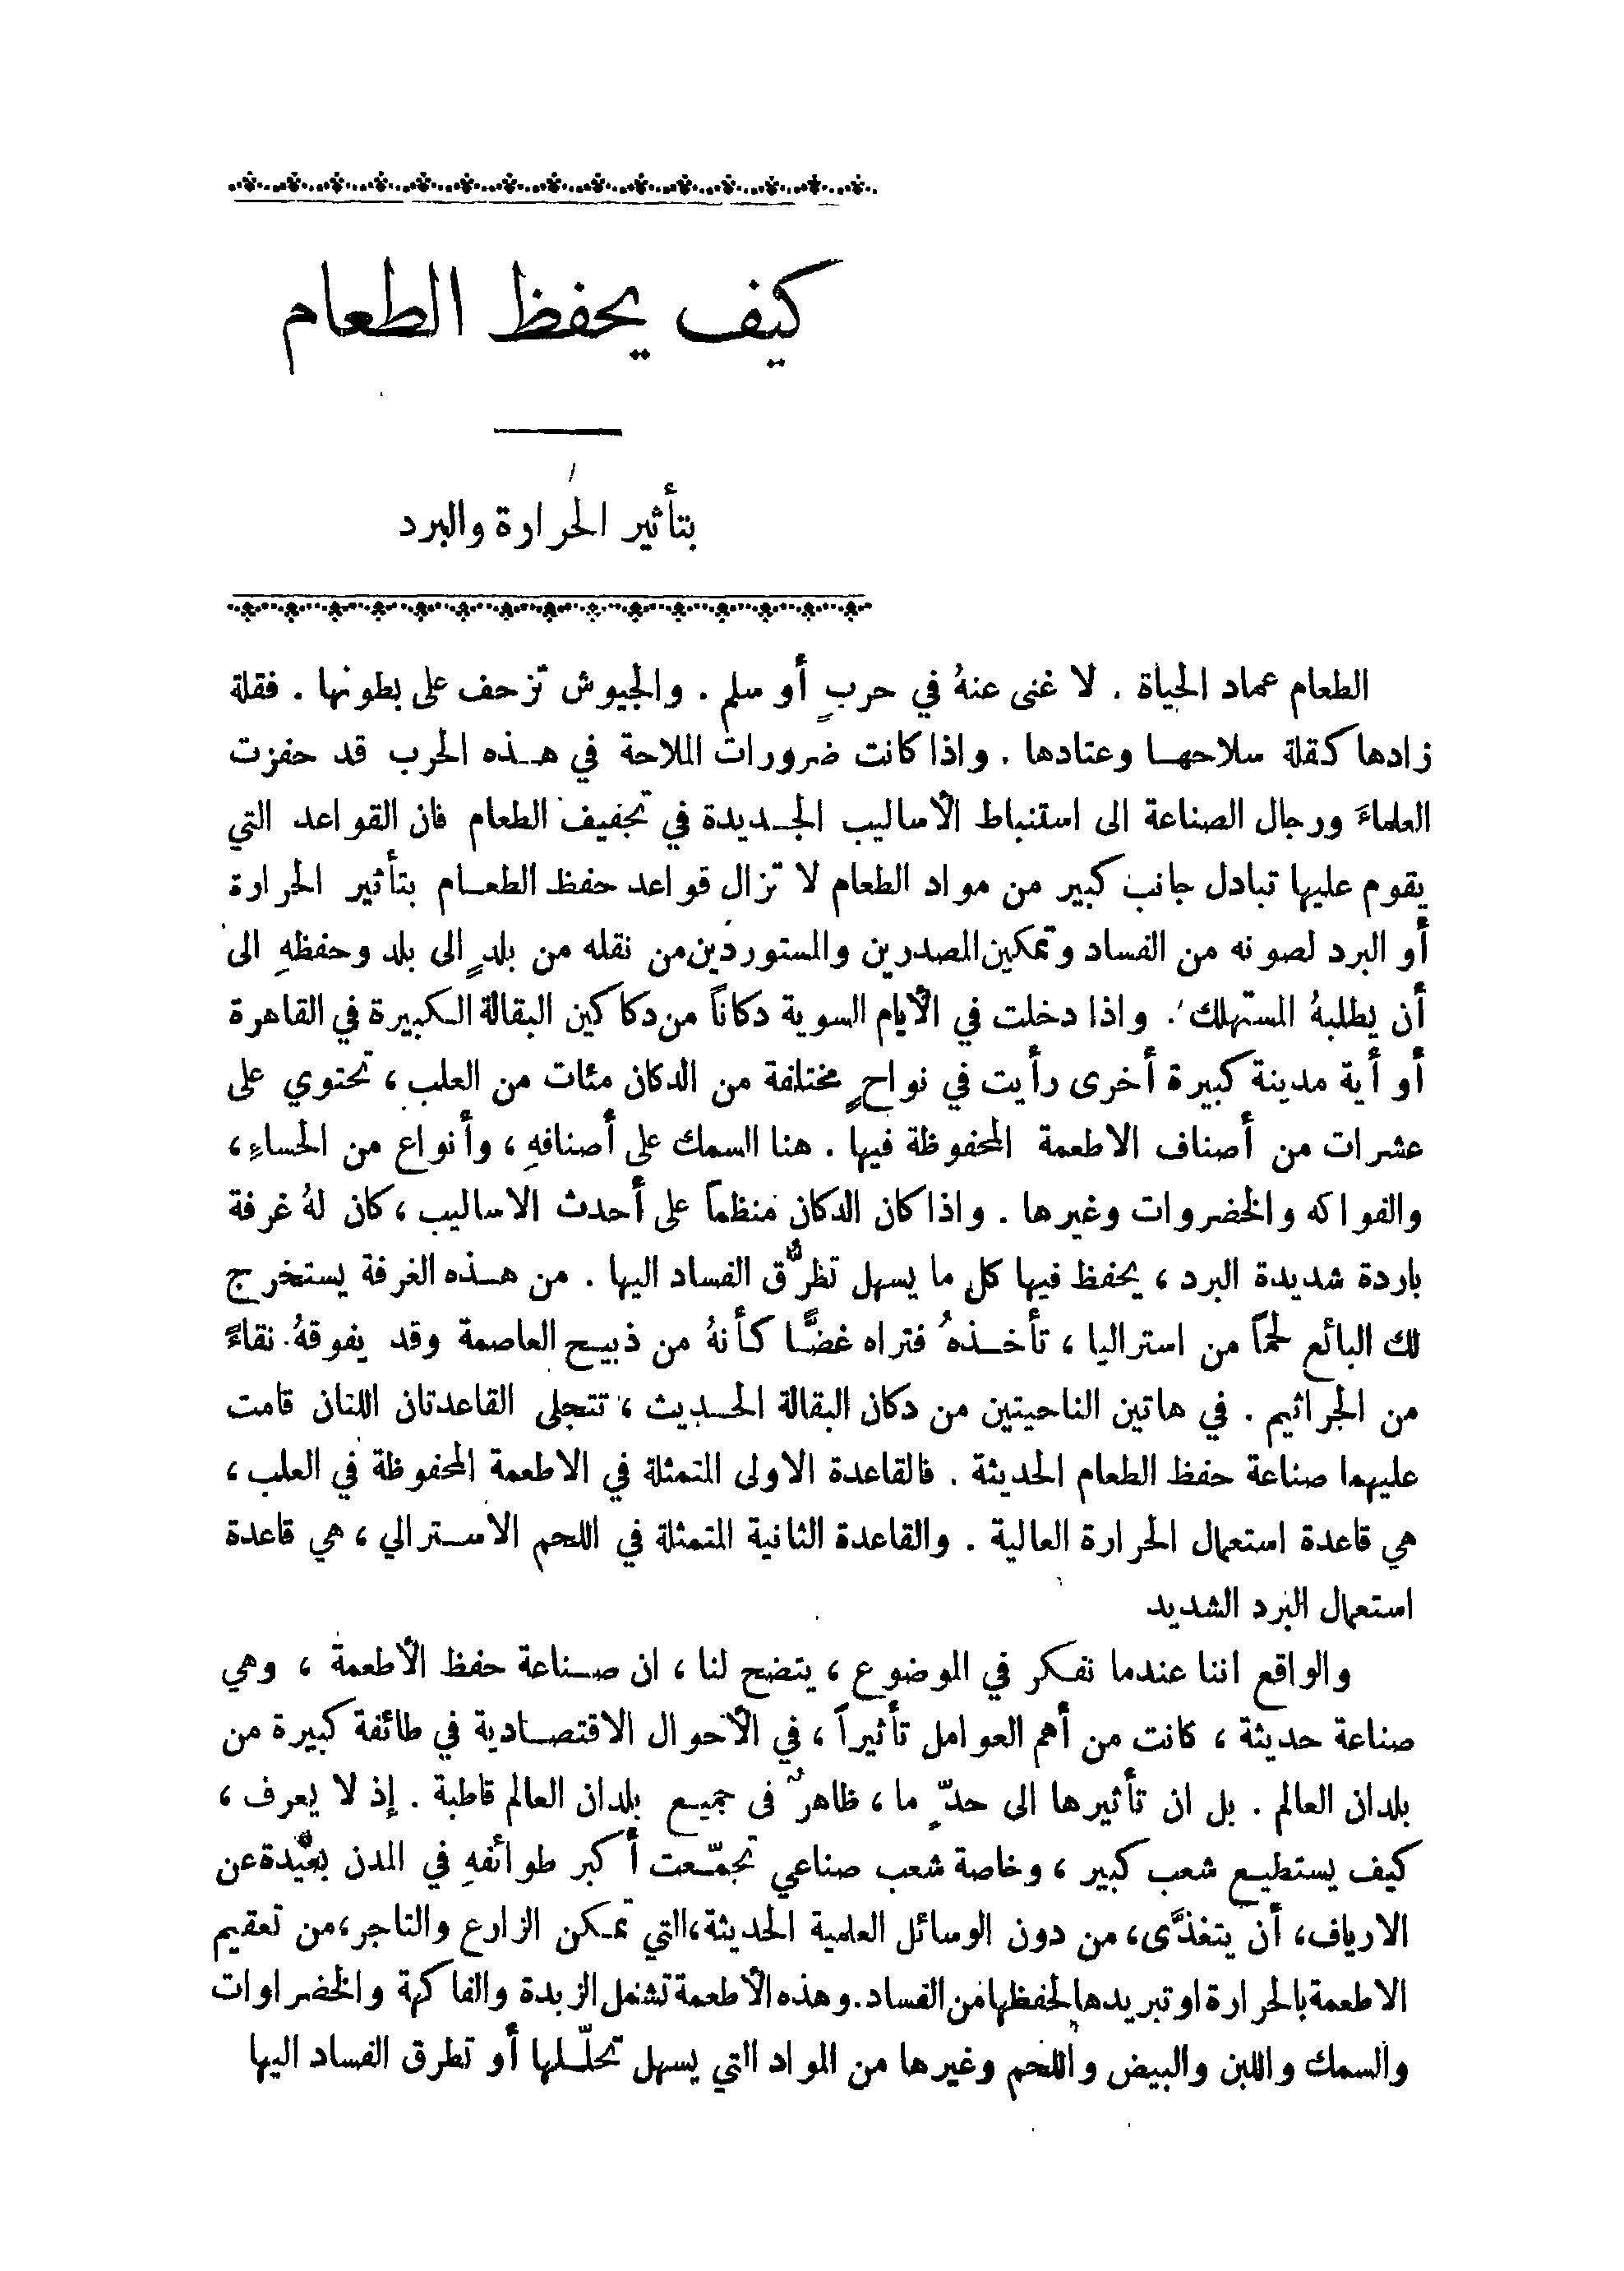 كيف يحفظ الطعام
بتأثير الحرارة والبرد
الطعام عماد الحياة . لا غنى عنهُ في حربٍ أو سلم . والجيوش تزحف على بطونها . فقلة
زادها كقلة سلاحها وعتادها . واذا كانت ضرورات الملاحة في هذه الحرب قد حفزت
العلماءَ ورجال الصناعة الى استنباط الأساليب الجديدة في تجفيف الطعام فان القواعد التي
يقوم عليها تبادل جانب كبير من مواد الطعام لا تزال قواعد حفظ الطعام بتأثير الحرارة
أو البرد لصونه من الفساد وتمكين المصدرين والمستوردين من نقله من بلدٍ الى بلد وحفظهِ الى
أن يطلبهُ المستهلك . واذا دخلت في الأيام السوية دكاناً من دكاكين البقالة الكبيرة في القاهرة
أو أية مدينة كبيرة أخرى رأيت في نواحٍ مختلفة من الدكان مئات من العلب ، تحتوي على
عشرات من أصناف الاطعمة المحفوظة فيها . هنا السمك على أصنافهِ ، وأنواع من الحساءِ ،
والفواكه والخضروات وغيرها . واذا كان الدكان منظماً على أحدث الاساليب ، كان لهُ غرفة
باردة شديدة البرد ، يحفظ فيها كل ما يسهل تطرُّق الفساد اليها . من هذه الغرفة يستخرج
لك البائع لحماً من استراليا ، تأخذهُ فتراه غضًّا كأنهُ من ذبيح العاصمة وقد يفوقهُ نقاءً
من الجراثيم . في هاتين الناحيتين من دكان البقالة الحديث ، تتجلى القاعدتان اللتان قامت
عليهما صناعة حفظ الطعام الحديثة . فالقاعدة الاولى المتمثلة في الاطعمة المحفوظة في العلب ،
هي قاعدة استعمال الحرارة العالية . والقاعدة الثانية المتمثلة في اللحم الاسترالي ، هي قاعدة
استعمال البرد الشديد
والواقع اننا عندما نفكر في الموضوع ، يتضح لنا ، ان صناعة حفظ الأطعمة ، وهي
صناعة حديثة ، كانت من أهم العوامل تأثيراً ، في الأحوال الاقتصادية في طائفة كبيرة من
بلدان العالم . بل ان تأثيرها الى حدٍّ ما ، ظاهرٌ في جميع بلدان العالم قاطبة . إذ لا يعرف ،
كيف يستطيع شعب كبير ، وخاصة شعب صناعي تجمّعت أكبر طوائفهِ في المدن بعيدة عن
الارياف، أن يتغذَّى، من دون الوسائل العلمية الحديثة، التي تمكن الزارع والتاجر، من تعقيم
الاطعمة بالحرارة او تبريدها لحفظها من الفساد. وهذه الأطعمة تشمل الزبدة والفاكهة والخضراوات
والسمك واللبن والبيض واللحم وغيرها من المواد التي يسهل تحلّلها أو تطرق الفساد اليها